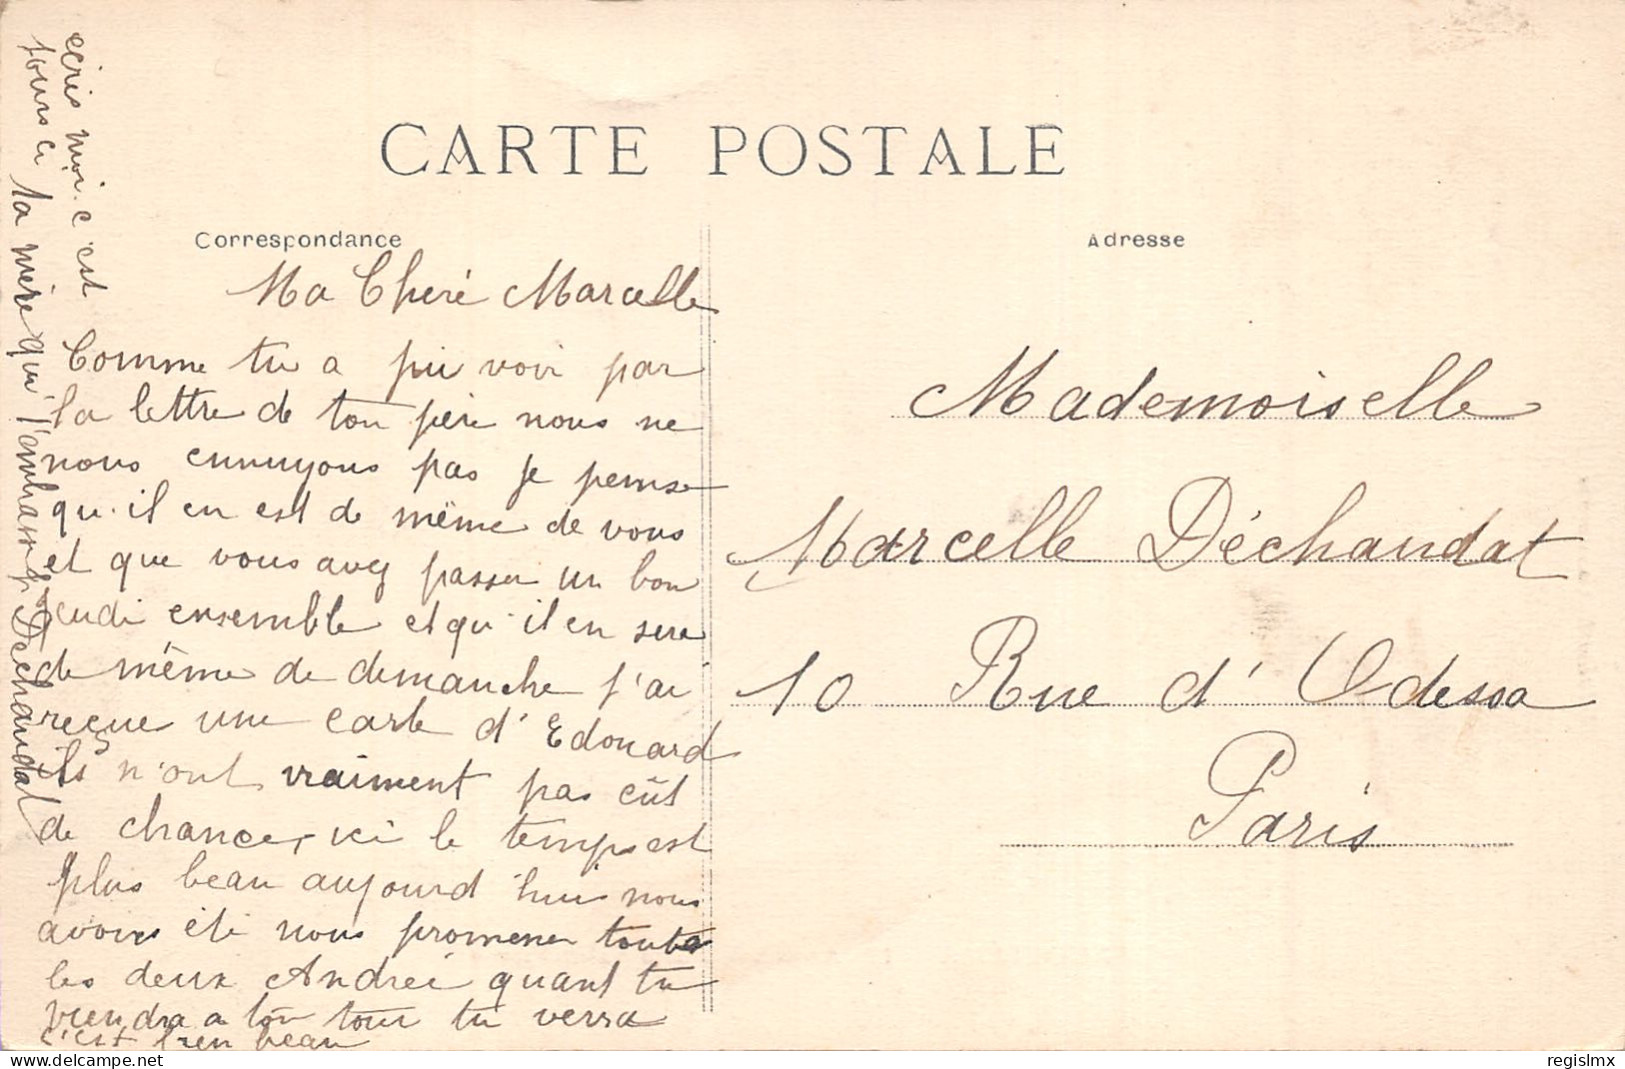 CARTE POSTALE
Correspondance
Adresse
Ma Cheré Marcelle
Comme tu a pu voir par
la lettre de ton père nous ne
nous ennuyons pas je pense
qu'il en est de même de vous
et que vous avez passer un bon
jeudi ensemble et qu'il en sera
de même de demanche j'ai
reçue une carte d'Edouard
ils n'ont vraiment pas eût
de chance, ici le temps est
plus beau aujourd'hui nous
avons été nous promener toutes
les deux Andreé quant tu
viendra a ton tour tu verra
c'est bien beau
ecris moi c'est
ta mère qui t'embrasse Dechaudat
Mademoiselle
Marcelle Déchaudat
10 Rue d'Odessa
Paris
delcampe.net
regislmx